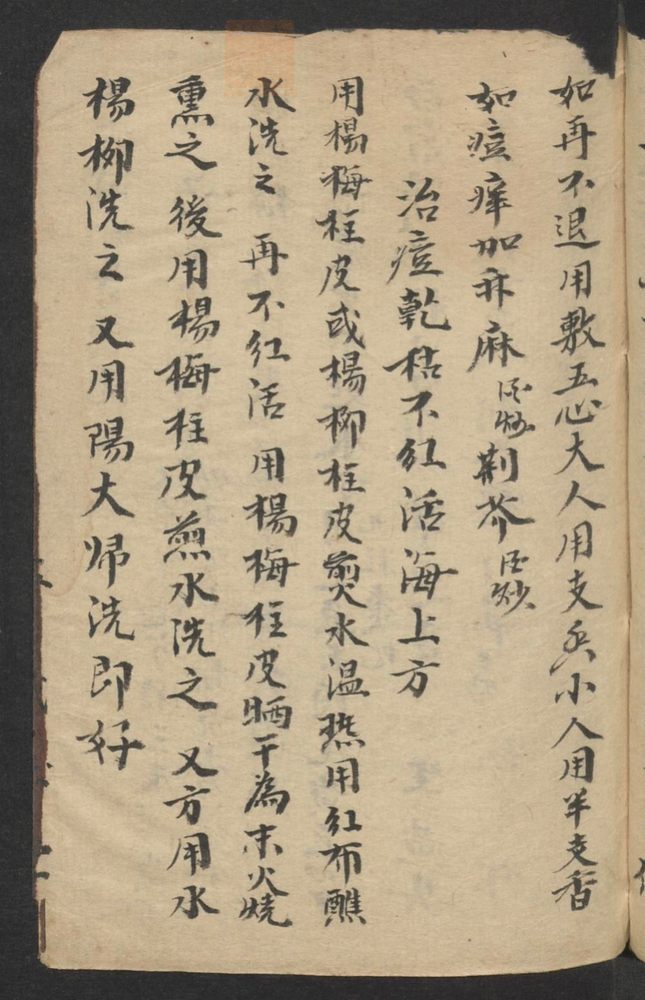 如再不退用敷五心大人用支香小人用半支香
如痘痒加升麻酒炒荆芥酒炒
治痘乾枯不红活海上方
用楊梅柱皮或楊柳柱皮煎水温热用红布醮
水洗之 再不红活 用楊梅柱皮晒干為末火燒
熏之後用楊梅柱皮煎水洗之 又方用水
楊柳洗之 又用陽大歸洗即好